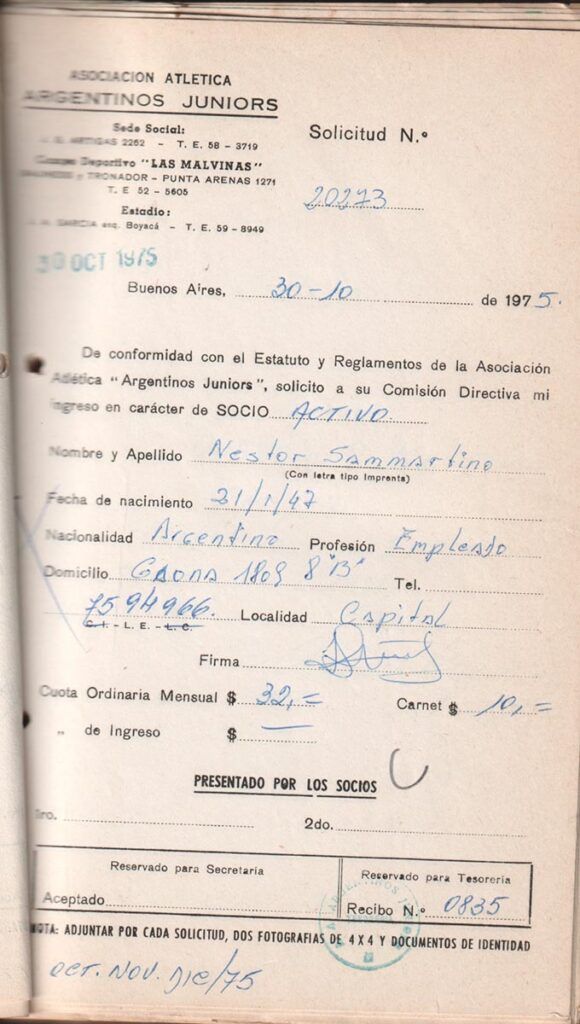 ASOCIACION ATLETICA
ARGENTINOS JUNIORS
Sede Social:
ARTIGAS 2262 - T. E. 58 - 3719
Campo Deportivo "LAS MALVINAS"
y TRONADOR - PUNTA ARENAS 1271
T. E 52 - 5605
Estadio:
GARCIA esq. Boyacá - T. E. 59 - 8949
Solicitud N.º
20273
30 OCT 1975
Buenos Aires, 30-10 de 1975.
De conformidad con el Estatuto y Reglamentos de la Asociación
Atlética "Argentinos Juniors", solicito a su Comisión Directiva mi
ingreso en carácter de SOCIO ACTIVO
Nombre y Apellido Nestor Sammartino
(Con letra tipo Imprenta)
Fecha de nacimiento 21/1/47
Nacionalidad Argentino Profesión Empleado
Domicilio Gaona 1809 8 "B" Tel.
7594966. Localidad Capital
C. I. - L. E. - L. C.
Firma
Cuota Ordinaria Mensual $ 32,= Carnet $ 10,=
" de Ingreso $ —
PRESENTADO POR LOS SOCIOS
1ro. 2do.
Reservado para Secretaría
Aceptado
Reservado para Tesorería
Recibo N.º 0835
NOTA: ADJUNTAR POR CADA SOLICITUD, DOS FOTOGRAFIAS DE 4 X 4 Y DOCUMENTOS DE IDENTIDAD
OCT. NOV. DIC/75